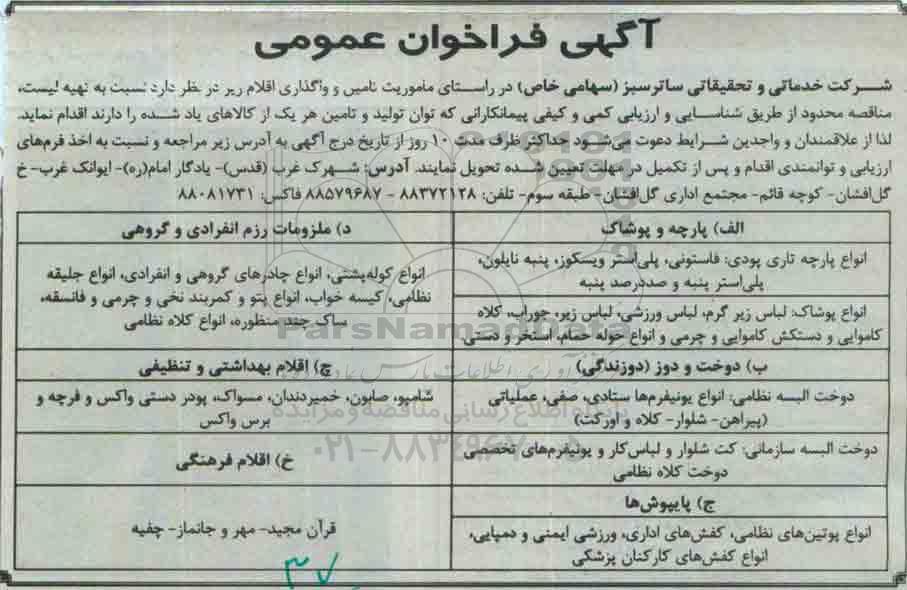 آگهی فراخوان عمومی
شرکت خدماتی و تحقیقاتی ساترسبز (سهامی خاص) در راستای ماموریت تامین و واگذاری اقلام زیر در نظر دارد نسبت به تهیه لیست،
مناقصه محدود از طریق شناسایی و ارزیابی کمی و کیفی پیمانکارانی که توان تولید و تامین هر یک از کالاهای یاد شده را دارند اقدام نماید.
لذا از علاقمندان و واجدین شرایط دعوت می‌شود حداکثر ظرف مدت ۱۰ روز از تاریخ درج آگهی به آدرس زیر مراجعه و نسبت به اخذ فرم‌های
ارزیابی و توانمندی اقدام و پس از تکمیل در مهلت تعیین شده تحویل نمایند. آدرس: شهرک غرب (قدس)- یادگار امام(ره)- ایوانک غرب- خ
گل‌افشان- کوچه قائم- مجتمع اداری گل‌افشان- طبقه سوم- تلفن: ۸۸۳۷۲۱۲۸ - ۸۸۵۷۹۶۸۷ فاکس: ۸۸۰۸۱۷۳۱
الف) پارچه و پوشاک
انواع پارچه تاری پودی: فاستونی، پلی‌استر ویسکوز، پنبه نایلون،
پلی‌استر پنبه و صددرصد پنبه
انواع پوشاک: لباس زیر گرم، لباس ورزشی، لباس زیر، جوراب، کلاه
کاموایی و دستکش کاموایی و چرمی و انواع حوله حمام، استخر و دستی.
ب) دوخت و دوز (دوزندگی)
دوخت البسه نظامی: انواع یونیفرم‌ها ستادی، صفی، عملیاتی
(پیراهن- شلوار- کلاه و اورکت)
دوخت البسه سازمانی: کت شلوار و لباس کار و یونیفرم‌های تخصصی
دوخت کلاه نظامی
ج) پایپوش‌ها
انواع پوتین‌های نظامی، کفش‌های اداری، ورزشی ایمنی و دمپایی،
انواع کفش‌های کارکنان پزشکی
د) ملزومات رزم انفرادی و گروهی
انواع کوله‌پشتی، انواع چادرهای گروهی و انفرادی، انواع جلیقه
نظامی، کیسه خواب، انواع پتو و کمربند نخی و چرمی و فانسقه،
ساک چند منظوره، انواع کلاه نظامی
چ) اقلام بهداشتی و تنظیفی
شامپو، صابون، خمیردندان، مسواک، پودر دستی واکس و فرچه و
برس واکس
خ) اقلام فرهنگی
قرآن مجید- مهر و جانماز- چفیه
۳۷
ParsNamadData
پایگاه اطلاع رسانی مناقصه و مزایده